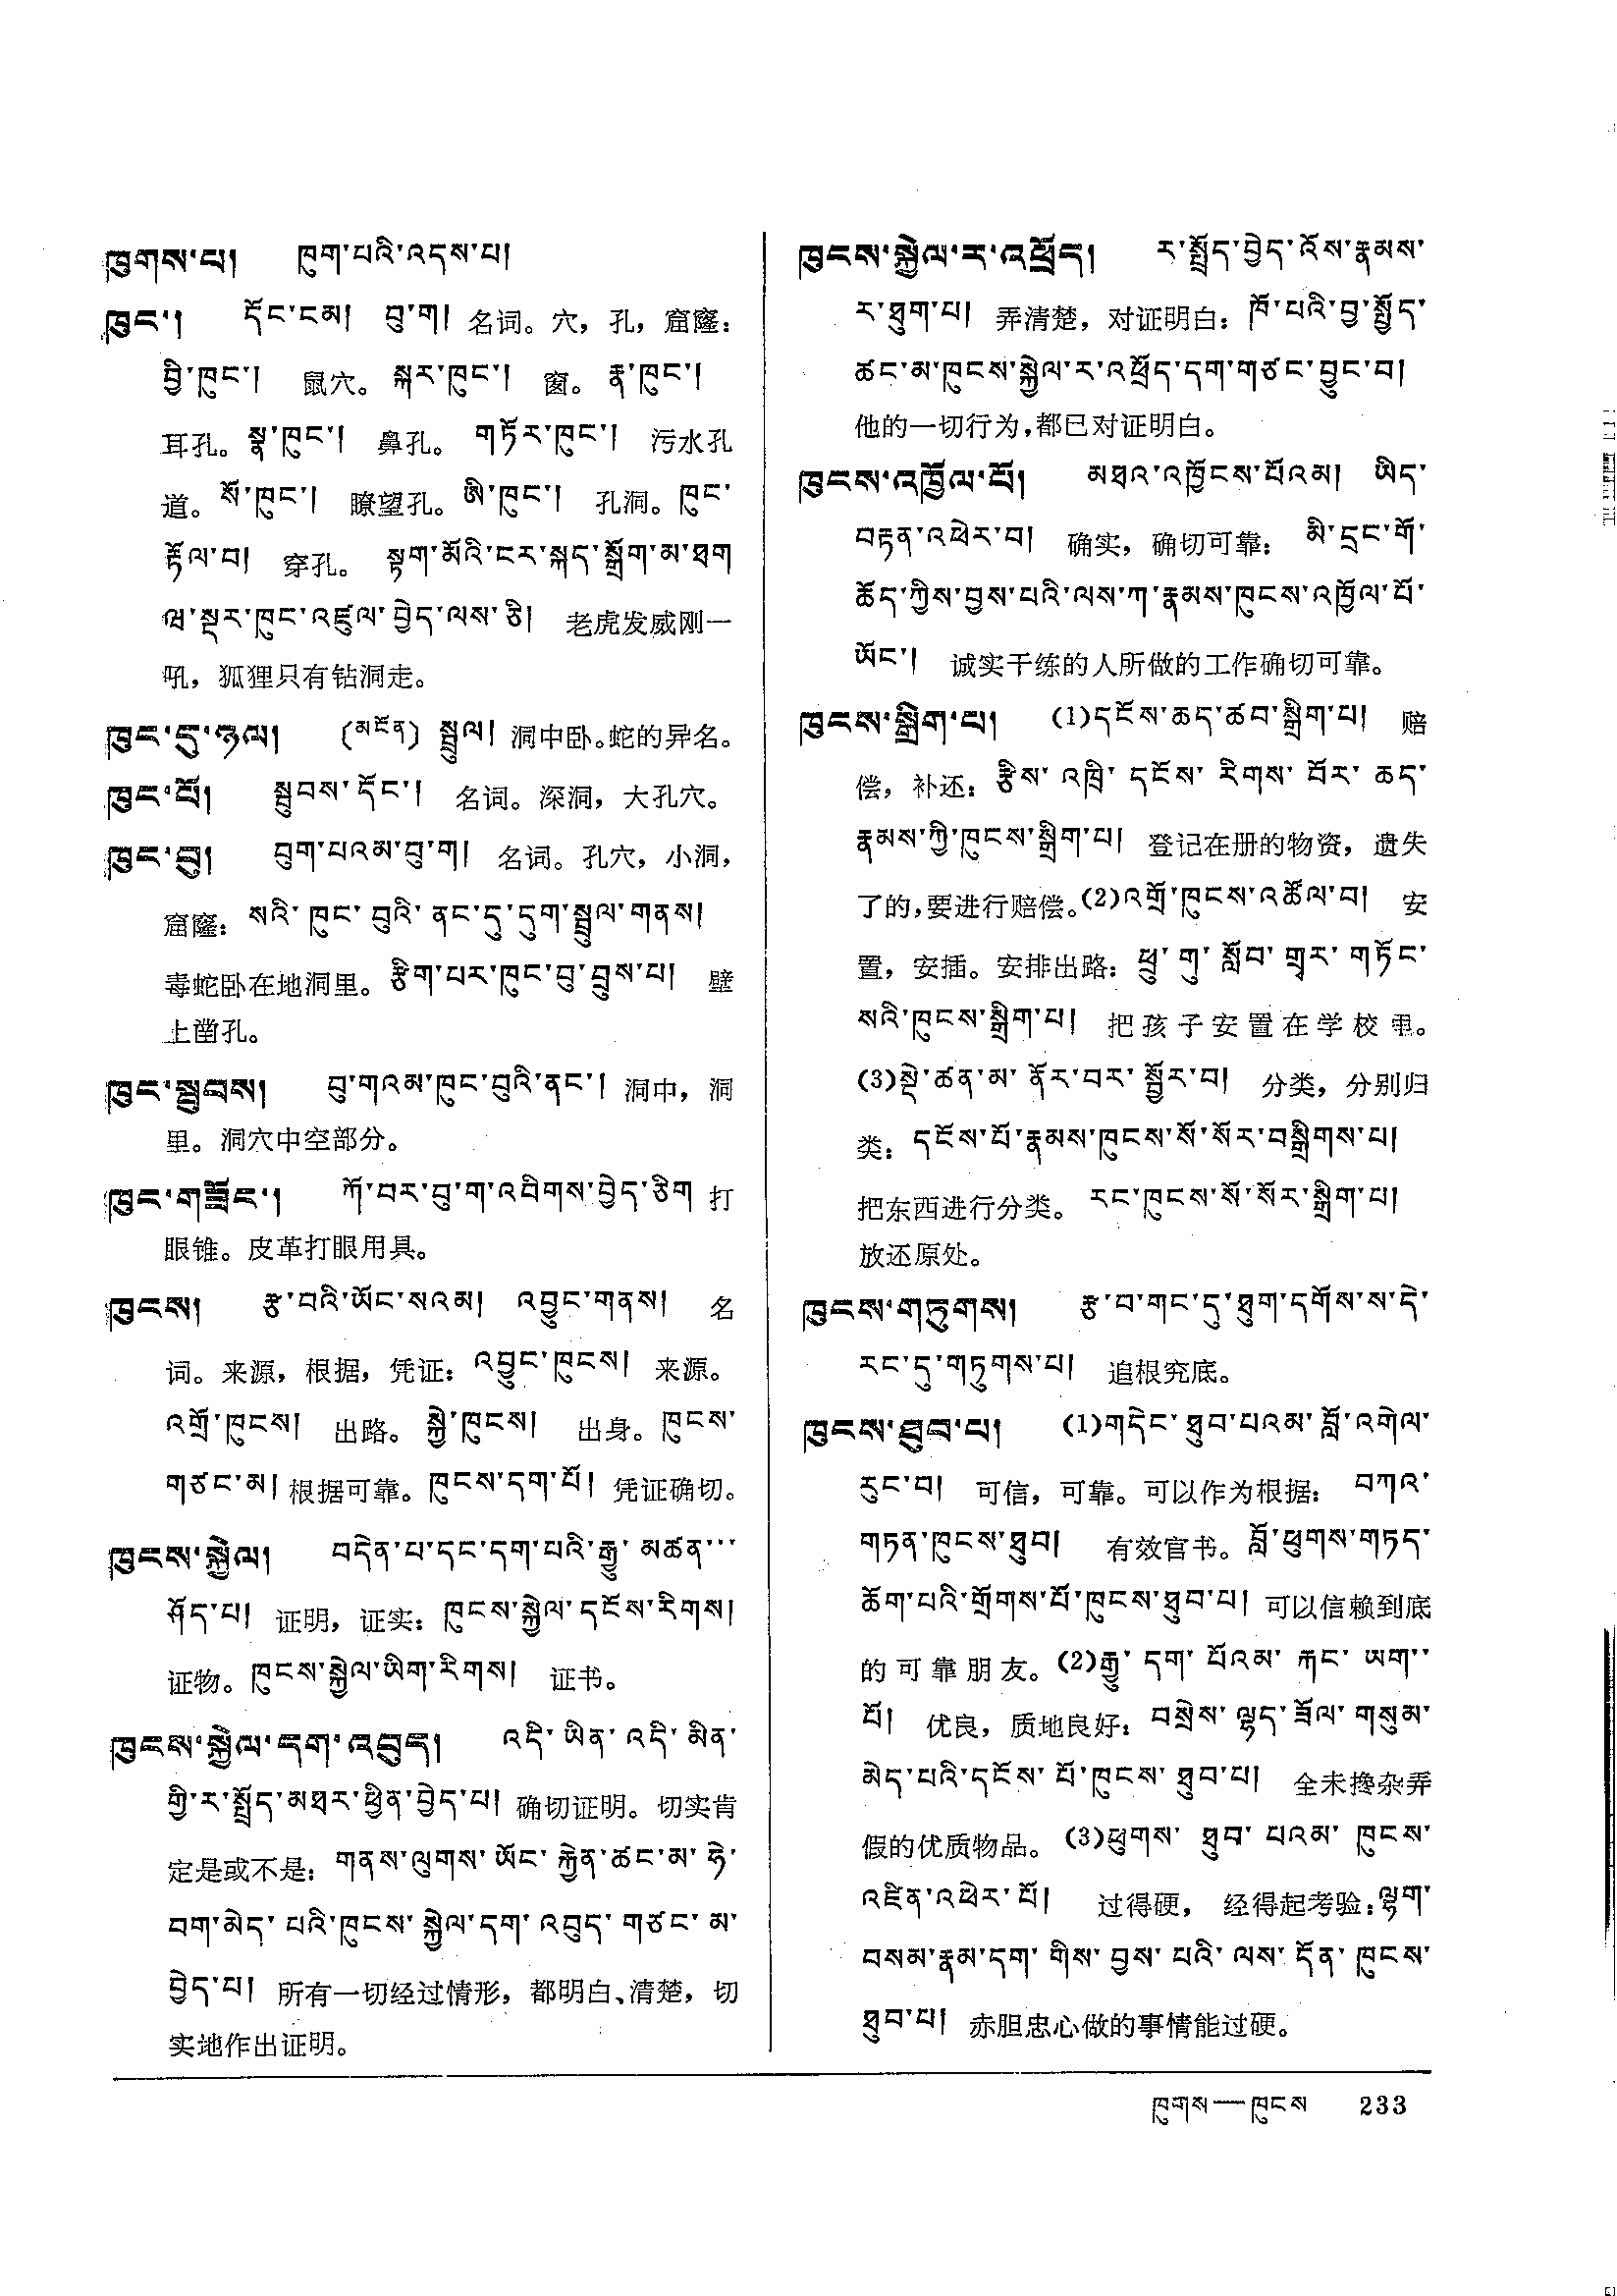 ཁུགས་པ།  ཁུག་པའི་འདས་པ།
ཁུང་།  དོང་ངམ།  བུ་ག། 名词。穴，孔，窟窿：
བྱི་ཁུང་།  鼠穴。 སྐར་ཁུང་།  窗。 རྣ་ཁུང་།
耳孔。 སྣ་ཁུང་།  鼻孔。 གཏོར་ཁུང་།  污水孔
道。 སོ་ཁུང་།  瞭望孔。 ཨི་ཁུང་།  孔洞。 ཁུང་
རྟོལ་བ།  穿孔。 སྟག་མོའི་ངར་སྐད་སྒྲོག་མ་ཐག
ཝ་སྡར་ཁུང་འཛུལ་བྱེད་ལས་ཅི།  老虎发威刚一
吼，狐狸只有钻洞走。
ཁུང་དུ་ཉལ།  (མངོན) སྦྲུལ། 洞中卧。蛇的异名。
ཁུང་པོ།  སྦུབས་དོང་།  名词。深洞，大孔穴。
ཁུང་བུ།  བུག་པའམ་བུ་ག།  名词。孔穴，小洞，
窟窿： སའི་ ཁུང་ བུའི་ ནང་དུ་དུག་སྦྲུལ་གནས།
毒蛇卧在地洞里。 རྩིག་པར་ཁུང་བུ་བྲུས་པ།  壁
上凿孔。
ཁུང་སྦུབས།  བུ་གའམ་ཁུང་བུའི་ནང་། 洞中，洞
里。洞穴中空部分。
ཁུང་གཟོང་།  ཀོ་བར་བུ་ག་འབིགས་བྱེད་ཅིག 打
眼锥。皮革打眼用具。
ཁུངས།  རྩ་བའི་ཡོང་སའམ།  འབྱུང་གནས།  名
词。来源，根据，凭证： འབྱུང་ཁུངས།  来源。
འགྲོ་ཁུངས།  出路。 སྐྱེ་ཁུངས།  出身。 ཁུངས་
གཙང་མ། 根据可靠。 ཁུངས་དག་པོ།  凭证确切。
ཁུངས་སྐྱེལ།  བདེན་པ་དང་དག་པའི་རྒྱུ་ མཚན་་་
ཤོད་པ།  证明，证实： ཁུངས་སྐྱེལ་དངོས་རིགས།
证物。 ཁུངས་སྐྱེལ་ཡིག་རིགས།  证书。
ཁུངས་སྐྱེལ་དག་འབུད།  འདི་ ཡིན་ འདི་ མིན་
གྱི་ར་སྤྲོད་མཐར་ཕྱིན་བྱེད་པ། 确切证明。切实肯
定是或不是： གནས་ལུགས་ ཡོང་ རྐྱེན་ཚང་མ་ ཧེ་
བག་མེད་ པའི་ཁུངས་ སྐྱེལ་དག་ འབུད་ གཙང་ མ་
བྱེད་པ།  所有一切经过情形，都明白、清楚，切
实地作出证明。
ཁུངས་སྐྱེལ་ར་འཕྲོད།  ར་སྤྲོད་བྱེད་འོས་རྣམས་
ར་ཐུག་པ།  弄清楚，对证明白： ཁོ་པའི་བྱ་སྤྱོད་
ཚང་མ་ཁུངས་སྐྱེལ་ར་འཕྲོད་དག་གཙང་བྱུང་བ།
他的一切行为，都已对证明白。
ཁུངས་འཁྱོལ་པོ།  མཐའ་འཁྱོངས་པོའམ།  ཡིད་
བརྟན་འཕེར་བ།  确实，确切可靠： མི་དྲང་གོ་
ཆོད་ཀྱིས་བྱས་པའི་ལས་ཀ་རྣམས་ཁུངས་འཁྱོལ་པོ་
ཡོང་།  诚实干练的人所做的工作确切可靠。
ཁུངས་སྒྲིག་པ།  (1)དངོས་ཆད་ཚབ་སྒྲིག་པ།  赔
偿，补还： རྩིས་ འཁྲི་ དངོས་ རིགས་ བོར་ ཆད་
རྣམས་ཀྱི་ཁུངས་སྒྲིག་པ།  登记在册的物资，遗失
了的，要进行赔偿。(2)འགྲོ་ཁུངས་འཚོལ་བ།  安
置，安插。安排出路： ཕྲུ་ གུ་ སློབ་ གྲྭར་ གཏོང་
སའི་ཁུངས་སྒྲིག་པ།  把孩子安置在学校里。
(3)སྡེ་ཚན་མ་ ནོར་བར་ སྦྱོར་བ།  分类，分别归
类： དངོས་པོ་རྣམས་ཁུངས་སོ་སོར་བསྒྲིགས་པ།
把东西进行分类。 རང་ཁུངས་སོ་སོར་སྒྲིག་པ།
放还原处。
ཁུངས་གཏུགས།  རྩ་བ་གང་དུ་ཐུག་དགོས་ས་དེ་
རང་དུ་གཏུགས་པ།  追根究底。
ཁུངས་ཐུབ་པ།  (1)གདེང་ཐུབ་པའམ་བློ་འགེལ་
རུང་བ།  可信，可靠。可以作为根据： བཀའ་
གཏན་ཁུངས་ཐུབ།  有效官书。 བློ་ཕུགས་གཏད་
ཆོག་པའི་གྲོགས་པོ་ཁུངས་ཐུབ་པ། 可以信赖到底
的可靠朋友。(2)རྒྱུ་ དག་ པོའམ་ རྐང་ ཡག་་
པོ།  优良，质地良好： བསྲེས་ ལྷད་ ཟོལ་ གསུམ་
མེད་པའི་དངོས་ པོ་ཁུངས་ ཐུབ་པ།  全未搀杂弄
假的优质物品。(3)ཕུགས་ ཐུབ་ པའམ་ ཁུངས་
འཛིན་འཕེར་པོ།  过得硬， 经得起考验：ལྷག་
བསམ་རྣམ་དག་ གིས་ བྱས་ པའི་ ལས་ དོན་ ཁུངས་
ཐུབ་པ། 赤胆忠心做的事情能过硬。
ཁུགས—ཁུངས  233